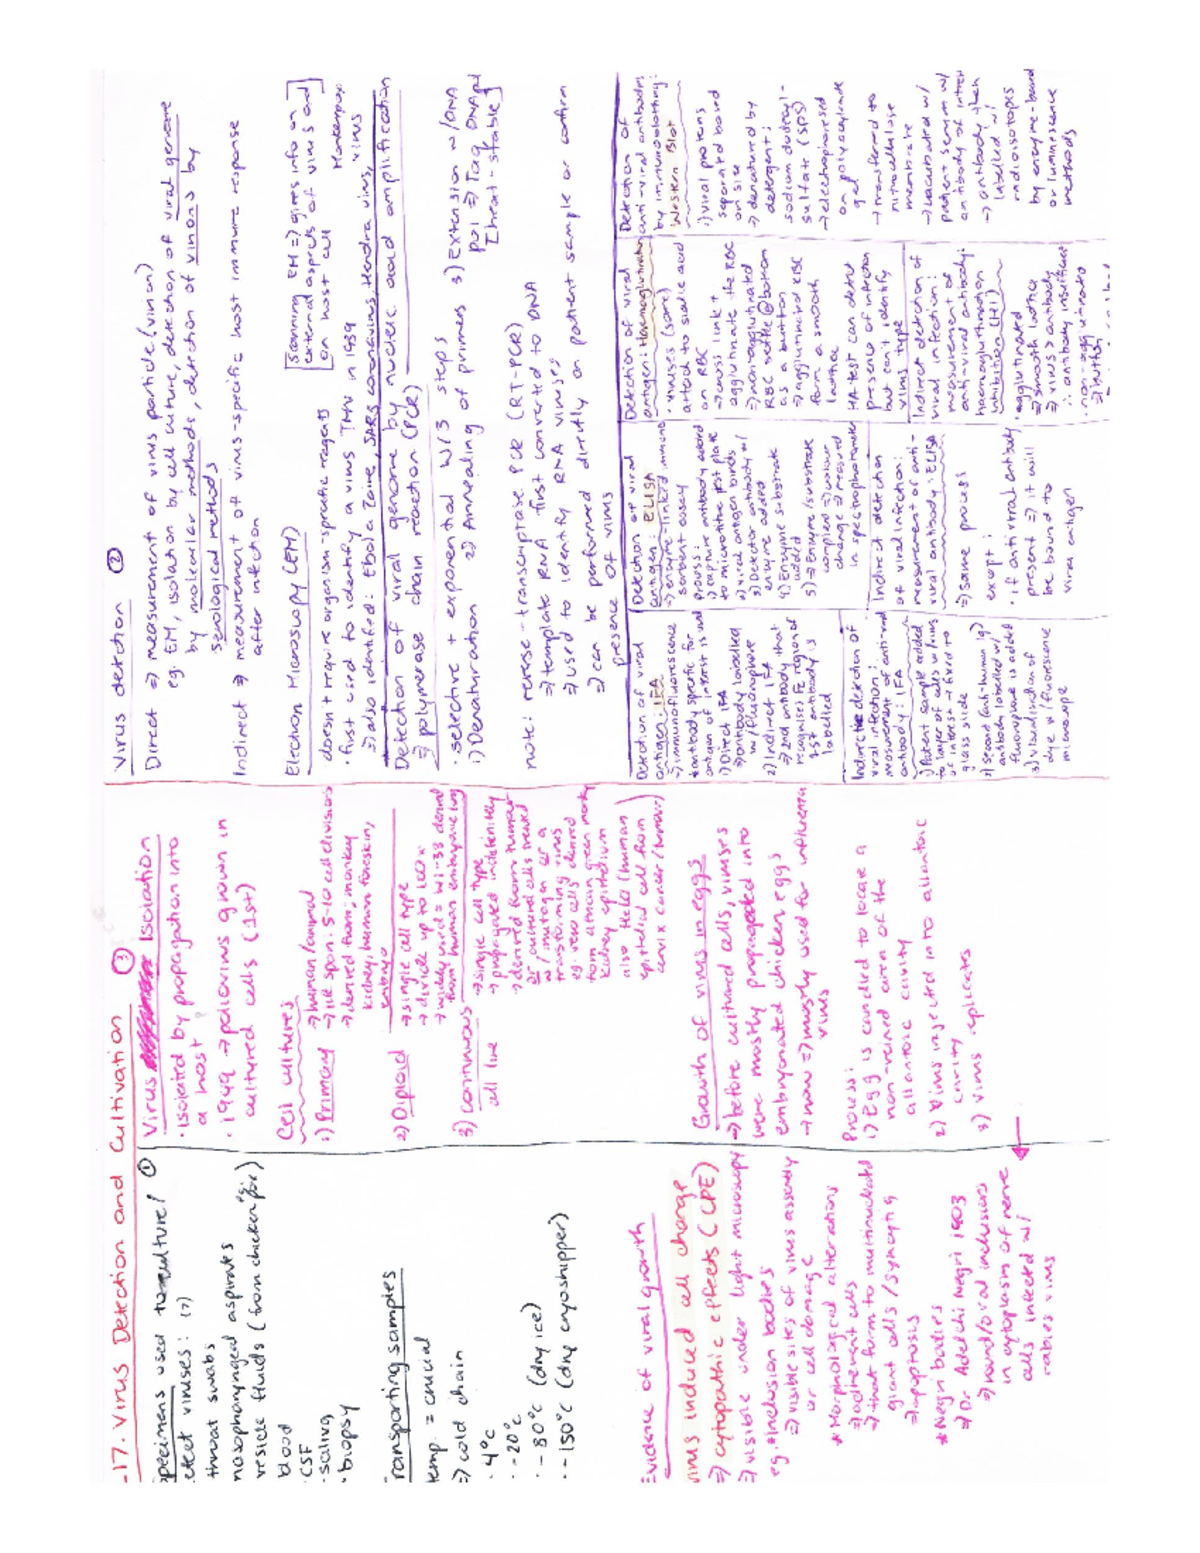 17. Virus Detection and Cultivation
specimens used to culture/ ①
detect viruses: (7)
throat swabs
nasopharyngeal aspirates
vesicle fluids (from chicken pox)
eg.
blood
· CSF
· saliva
· biopsy
Transporting samples
temp. = crucial
⇒ cold chain
· 4°C
· -20°C
· -80°C (dry ice)
· -150°C (dry cryoshipper)
Evidence of viral growth
virus induced cell change
⇒ cytopathic effects (CPE)
⇒ visible under light microscopy
eg. *Inclusion bodies
⇒ visible sites of virus assembly
or cell damage
* Morphological alterations
⇒ adherent cells
→ that form to multinucleated
giant cells / syncytia
⇒ apoptosis
* Negri bodies
⇒ Dr Adelchi Negri 1903
⇒ round/oval inclusions
in cytoplasm of nerve
cells infected w/
rabies virus
③
Virus Isolation
· Isolated by propagation into
a host
· 1949 → poliovirus grown in
cultured cells (1st)
Cell cultures
1) Primary → human/animal
→ life span: 5-10 cell divisions
→ derived from; monkey
kidney, human foreskin,
embryo
2) Diploid → single cell type
→ divide up to 100x
→ widely used = WI-38 derived
from human embryonic lung
3) continuous → single cell type
cell line → propagated indefinitely
→ derived from human
or cultured cells treated
w/ mutagen or a
transforming virus
eg. vero cells derived
from african green monkey
kidney epithelium
also Hela (human
epithelial cell from
cervix cancer/tumour)
Growth of virus in eggs
→ before cultured cells, viruses
were mostly propagated into
embryonated chicken eggs
→ now ⇒ mostly used for influenza
virus
Process:
1) Egg is candled to locate a
non-veined area of the
allantoic cavity
2) Virus injected into allantoic
cavity
3) virus replicates
Virus detection ②
Direct ⇒ measurement of virus particle (virion)
eg. EM, isolation by cell culture, detection of viral genome
by molecular methods, detection of virions by
serological methods
Indirect ⇒ measurement of virus-specific host immune response
after infection
Electron Microscopy (EM)
[Scanning EM ⇒ gives info on
external aspects of virus and
on host cell]
doesn't require organism-specific reagents
· first used to identify a virus TMV in 1939
⇒ also identified: Ebola Zaire, SARS coronavirus, Hendra virus, Monkeypox virus
Detection of viral genome by nucleic acid amplification
⇒ polymerase chain reaction (PCR)
· selective + exponential w/ 3 steps
1) Denaturation 2) Annealing of primers 3) Extension w/ DNA
pol ⇒ Taq DNA pol
[heat-stable]
note: reverse-transcriptase PCR (RT-PCR)
⇒ template RNA first converted to DNA
⇒ used to identify RNA viruses
⇒ can be performed directly on patient sample or confirm
presence of virus
Detection of viral
antigen: IFA
⇒ immunofluorescence
* antibody specific for
antigen of interest is used
1) Direct IFA
⇒ antibody labelled
w/ fluorophore
2) Indirect IFA
⇒ 2nd antibody that
recognises Fc region of
1st antibody is
labelled
Indirect detection of
viral infection:
measurement of anti-viral
antibody: IFA
1) Patient sample added
to layer of cells w/ virus
of interest → fixed to
glass slide
2) second (anti-human Ig)
antibody labelled w/
fluorophore is added
3) visualisation of
dye w/ fluorescence
microscope
Detection of viral
antigen: ELISA
⇒ enzyme linked immuno
sorbent assay
Process:
1) capture antibody added
to microtitre test plate
2) viral antigen binds
3) Detector antibody w/
enzyme added
4) Enzyme substrate
added
5) ⇒ Enzyme/substrate
complex ⇒ colour
change ⇒ measured
in spectrophotometer
Indirect detection
of viral infection:
measurement of anti-
viral antibody: ELISA
⇒ same process
except:
· if antiviral antibody
present ⇒ it will
be bound to
viral antigen
Detection of viral
antigen: Haemagglutination
· viruses (some)
attach to sialic acid
on RBC
→ cross link +
agglutinate the RBC
⇒ non-agglutinated
RBC settle @ bottom
as a button
⇒ agglutinated RBC
form a smooth
lattice
HA test can detect
presence of infection
but can't identify
virus type
Indirect detection of
viral infection:
measurement of
anti-viral antibody:
haemagglutination
inhibition (HI)
· agglutinated
⇒ smooth lattice
⇒ virus > antibody
∴ antibody insufficient
· non-agglutinated
⇒ button
Detection of
anti-viral antibodies
by immunoblotting:
Western Blot
1) viral proteins
separated based
on size
→ denatured by
detergent:
sodium dodecyl-
sulfate (SDS)
→ electrophoresed
on polyacrylamide
gel
→ transferred to
nitrocellulose
membrane
→ incubated w/
patient serum w/
antibody of interest
→ antibody then
labelled w/
radioisotopes
by enzyme-bound
or luminescence
methods